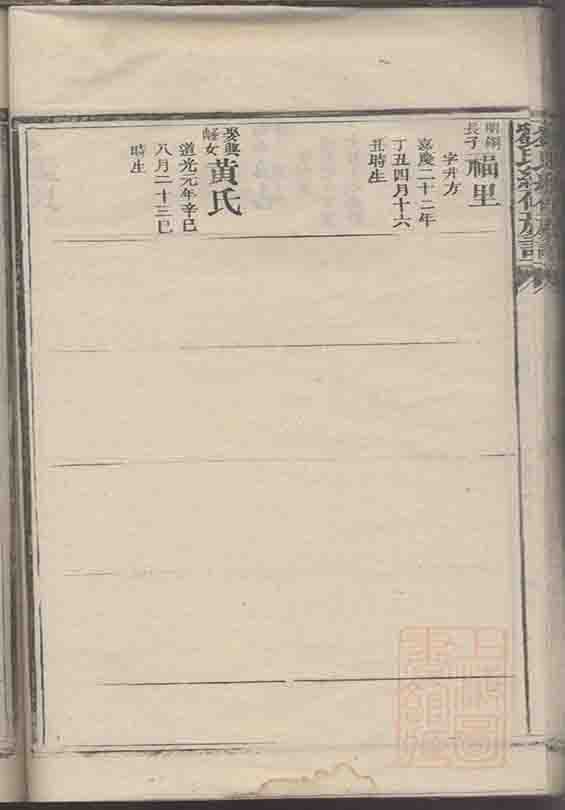 劉氏續修族譜
明翔
長子
福里
字升方
嘉慶二十二年
丁丑四月十六
丑時生
娶興
女
黄氏
道光元年辛巳
八月二十三巳
時生